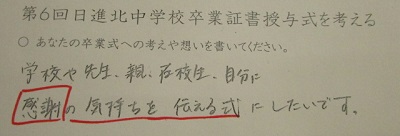 第6回日進北中学校卒業証書授与式を考える
○ あなたの卒業式への考えや想いを書いてください。
学校や先生、親、在校生、自分に
感謝の気持ちを伝える式にしたいです。